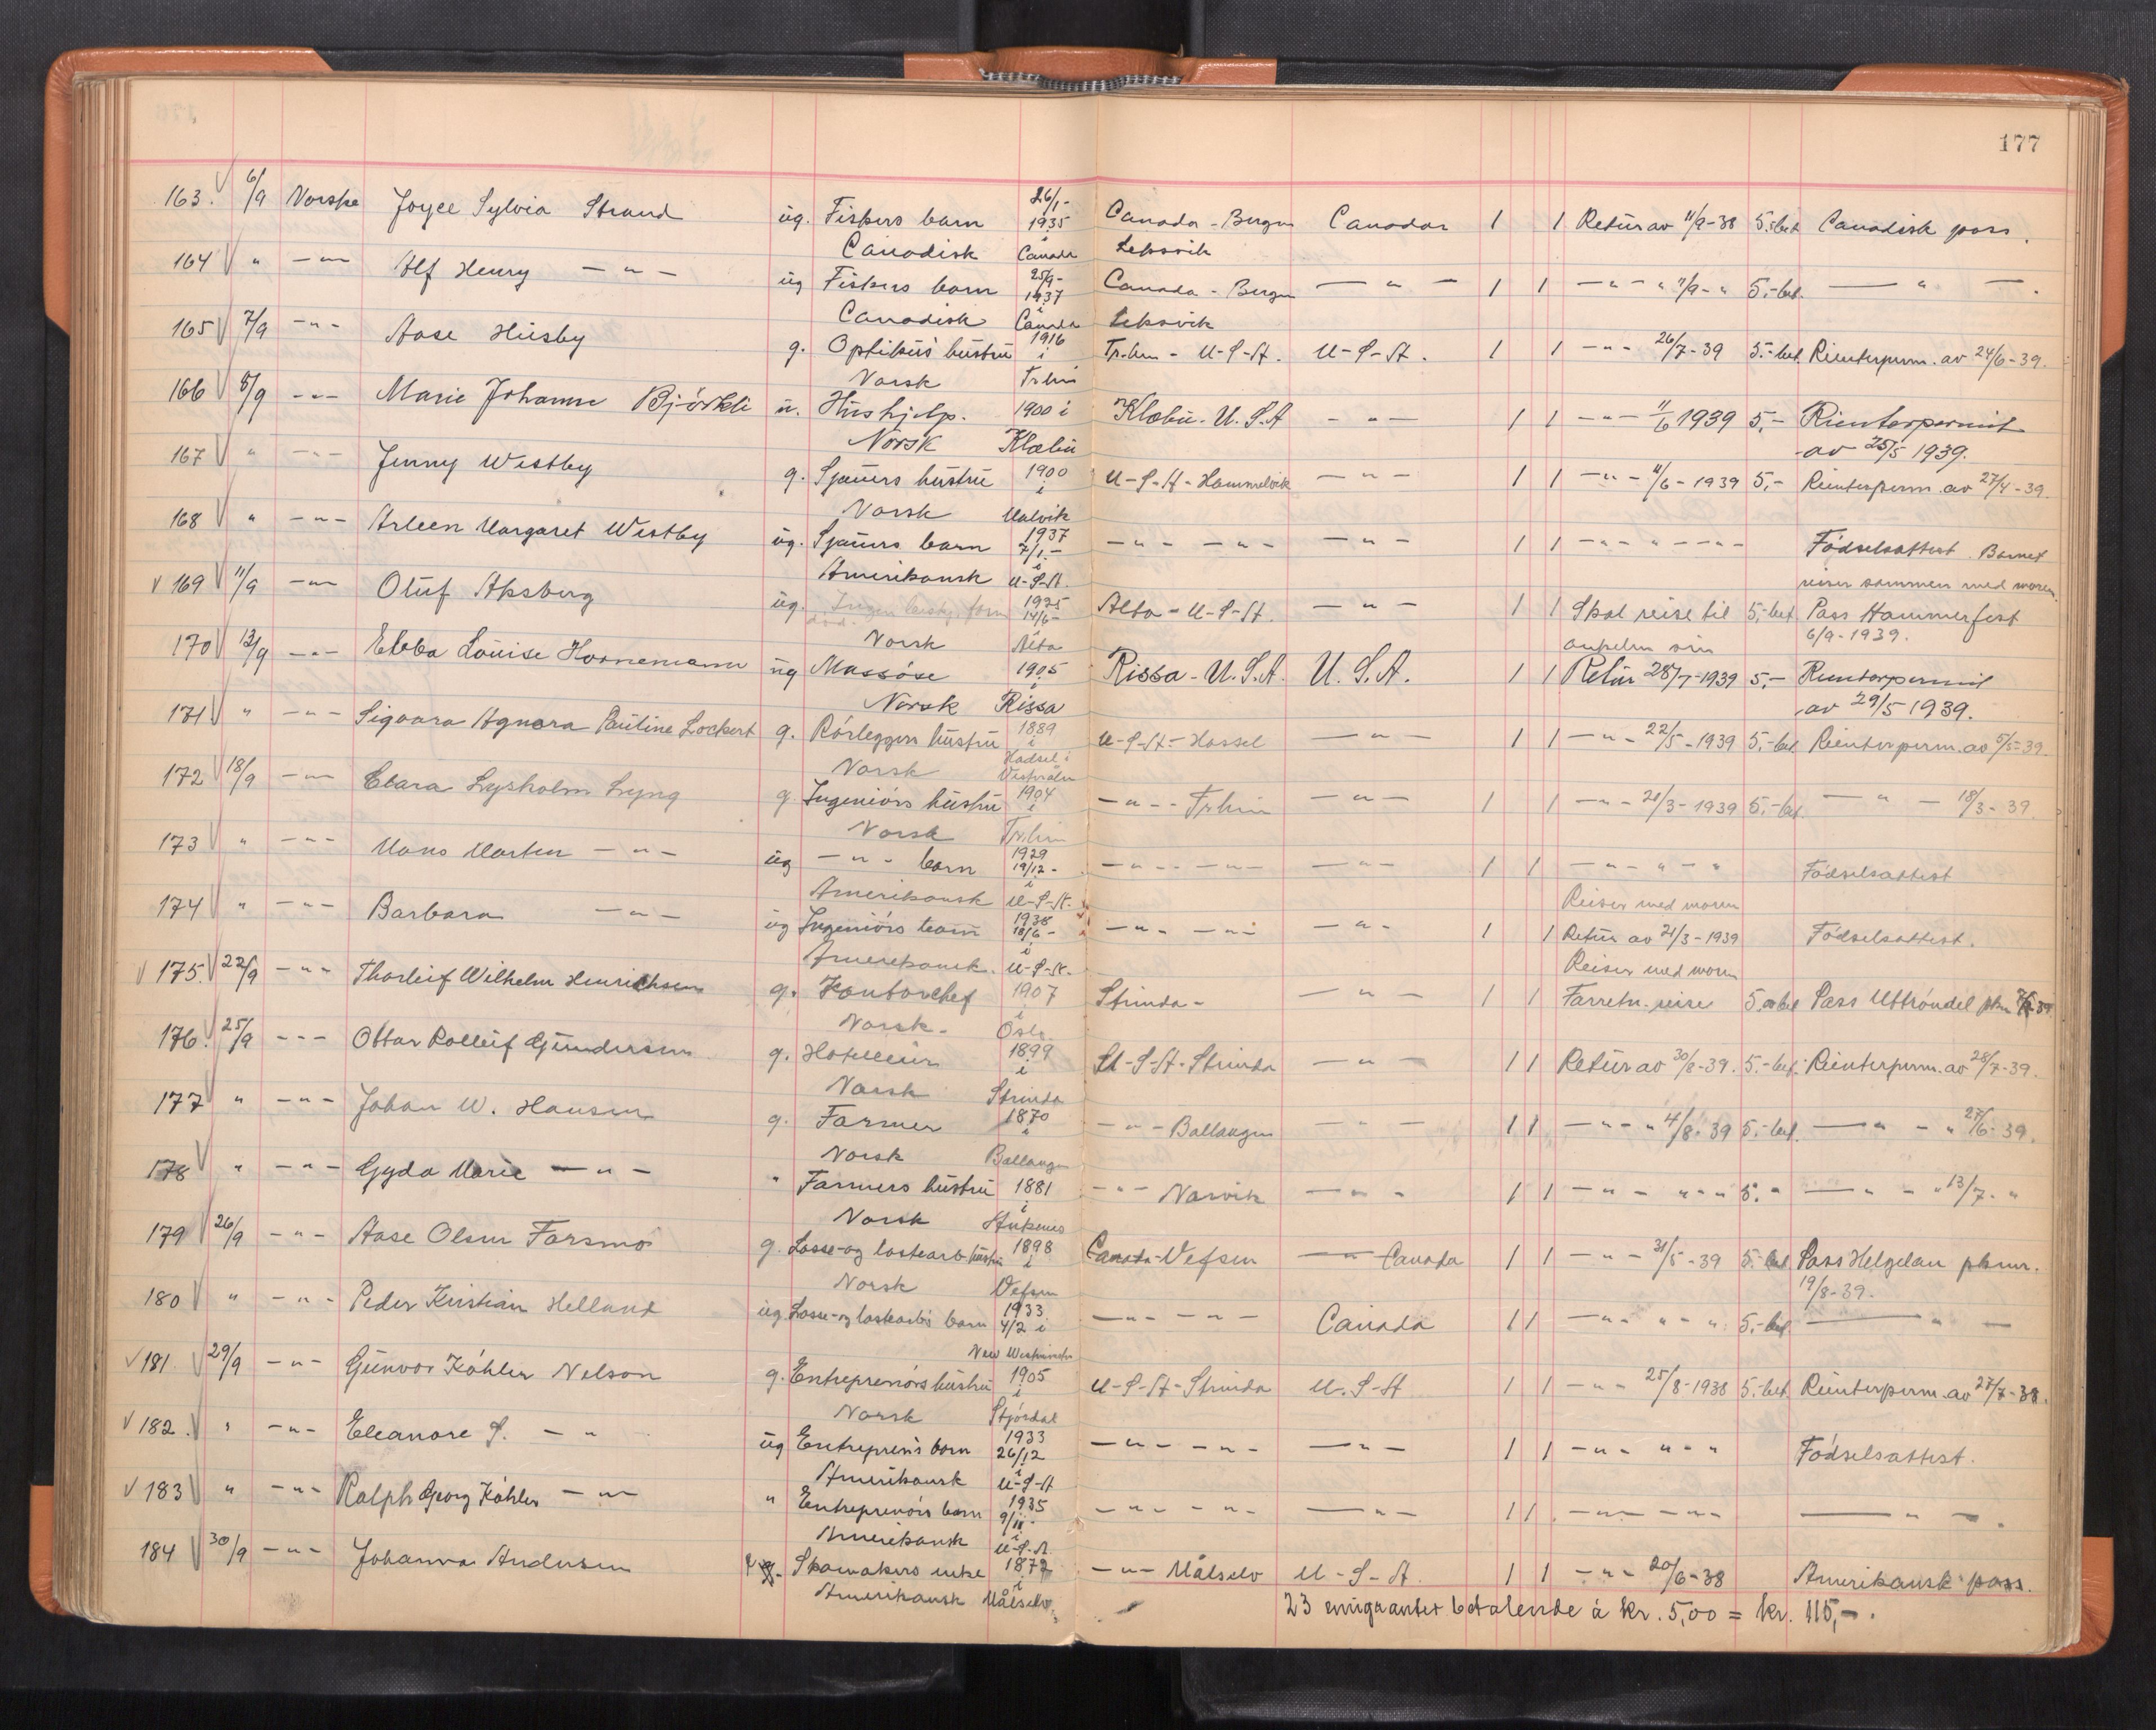 177
163. 6/9 Norske Joyce Sylvia Strand ug. Fiskers barn 26/1- 1935 Canada - Bergen Canada 1 1 Retur av 11/9-38 5,- bet Canadisk pass.
Canadisk i Canada Leksvik
164 " -"- Alf Henry -"- ug Fiskers barn 25/9- 1937 Canada - Bergen -"- 1 1 -"- " 11/9 - " 5,- bet. -"-
Canadisk i Canada Leksvik
165 7/9 -"- Aase Husby g. Optikus hustru 1916 i Tr.heim - U-S-A. U-S-A. 1 1 -"- 26/7-39 5.- bet. Rienterperm. av 24/6-39.
Norsk Tr.heim
166 8/9 -"- Marie Johanne Björkli u. Hushjelp. 1900 i Klæbu - U.S.A -"- 1 1 -"- 11/6 1939 5,- Rienterpermit
Norsk Klæbu av 25/5 1939.
167 " -"- Jenny Westby g. Sjauers hustru 1900 i U-S-A - Hommelvik -"- 1 1 -"- 11/6 - 1939 5,- Rienterperm. av 27/4-39.
Norsk Malvik
168 " -"- Arleen Margaret Westby ug. Sjauers barn 1937 7/1.- -"- -"- -"- 1 1 -"- " -"- Födselsattest. Barnet
Amerikansk i U-S-A. reiser sammen med moren.
169 11/9 -"- Oluf Aksberg ug. Ingen besky. 1925 14/6- Alta - U-S-A. -"- 1 1 Skal reise til 5,- bet Pass Hammerfest
Norsk i Alta onkelen sin 6/9-1939.
170 13/9 -"- Ebba Louise Hornemann ug Massöse 1905 i Rissa - U.S.A. U.S.A. 1 1 Retur 28/7-1939 5,- Rienterpermit
Norsk Rissa av 29/5 1939.
171 " -"- Sigvara Agnora Pauline Lockert g. Rörleggers hustru 1889 i U-S-A - Hassel -"- 1 1 -"- 22/5-1939 5,- bet. Rienterperm. av 5/5-39.
Norsk Hadsel i Vesterålen
172 18/9 -"- Clara Lysholm Lyng g Ingeniörs hustru 1904 i -"- - Tr.heim -"- 1 1 -"- 21/3-1939 5,- bet. -"- 18/3-39.
Norsk Tr.heim
173 " -"- Mons Morten -"- ug -"- barn 1929 19/12- -"- -"- -"- 1 1 -"- " - " Födselsattest
Amerikansk i U-S-A. Reiser med moren
174 " -"- Barbara -"- ug Ingeniörs barn 1938 18/6- -"- -"- -"- 1 1 Retur av 21/3-1939 Födselsattest.
Amerikansk. i U-S-A. Reiser med moren
175. 22/9 -"- Thorleif Wilhelm Henrichsen g. Kontorchef 1907 i Strinda - -"- 1 1 Forretn. reise 5,- bet Pass Uttröndel
Norsk. Oslo
176. 25/9 -"- Ottar Rolleif Gundersen g. Hotelleier 1899 i U-S-A - Strinda -"- 1 1 Retur av 30/8-39. 5,- bet. Rienterperm. av 28/7-39.
Norsk Strinda
177 " -"- Johan W. Hansen g. Farmer 1870 i -"- Ballangen -"- 1 1 -"- " 4/8-39 5,- bet. -"- " 27/6-39.
Norsk Ballangen
178 " -"- Gyda Marie -"- " Farmers hustru 1881 i -"- Narvik -"- 1 1 -"- "-"- 5.- " -"- " 13/7- "
Norsk
179 26/9 -"- Aase Olsen Forsmo g. Losse- og lastearb hustru 1898 i Canada - Vefsen Canada 1 1 -"- 31/5-39 5.- bet Pass Helgeland pkmr.
Norsk Vefsen 19/8-39.
180 " -"- Peder Kristian Helland ug. Losse- og lastearb's barn 1933 4/2 i -"- -"- Canada 1 1 -"- " - " 5,- bet -"-
New Westminster
181. 29/9 -"- Gunvor Köhler Nelson g. Entreprenörs hustru 1905 i U-S-A - Strinda U.S-A 1 1 -"- 25/8-1938 5,- bet Rienterperm. av 27/7-38.
Norsk Stjördal
182. " -"- Eleanore S. -"- ug Entrepren's barn 1933 26/12 -"- -"- -"- 1 1 -"- "-" Födselsattest.
Amerikansk i U-S-A
183 " -"- Ralph Georg Köhler -"- " Entreprenörs barn 1935 9/11- -"- -"- -"- 1 1 -"- -"- -"-
Amerikansk i U-S-A
184 30/9 -"- Johanna Andersen Skomakers enke 1872 i -"- Målselv U-S-A. 1 1 -"- 20/6-38 Amerikansk pass.
Amerikansk Målselv
23 emigranter betalende á kr. 5,00 = kr. 115,-.